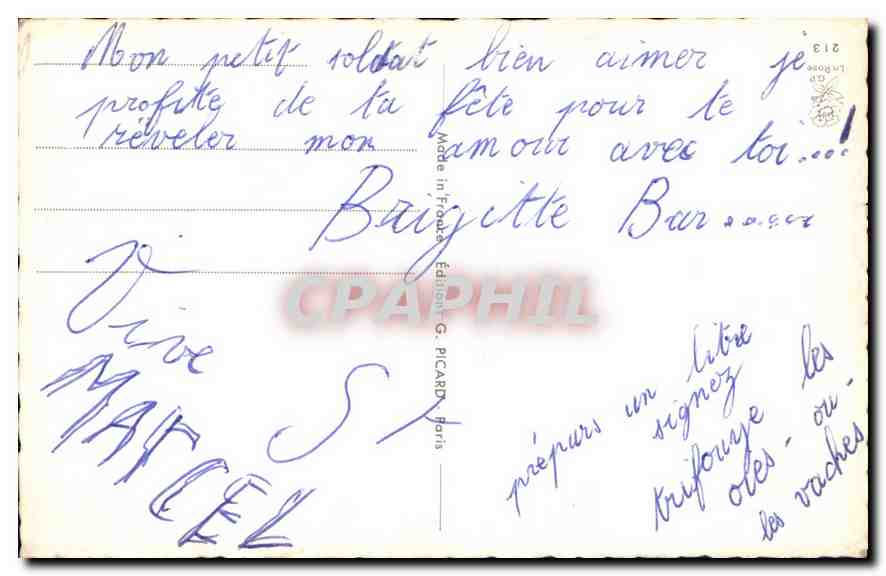 Mon petit soldat bien aimer je
profite de ta fête pour te
réveler mon amour avec toi....!
Brigitte Bar......
Vive
St
MARCEL
prépars un litre
signez
trifouye les
oles - ou -
les vaches
213
LnRose
G.P
Made in France Éditions G. PICARD - Paris
CPAPHIL